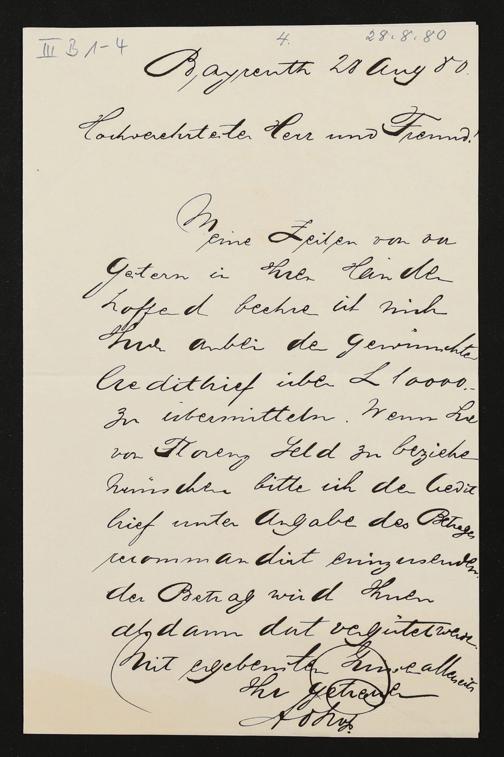 III B 1-4
4.
28.8.80
Bayreuth 28 Aug 80.
Hochverehrtester Herr und Freund!
Meine Zeilen von vor
gestern in Ihren Händen
hoffend beehre ich mich
Ihnen anbei den gewünschten
Creditbrief über £ 10000.-
zu übermitteln. Wenn Sie
von Florenz Geld zu beziehen
wünschen bitte ich den Credit
brief unter Angabe des Betrages
recommandirt einzusenden.
der Betrag wird Ihnen
alsdann dort vergütet werden.
Mit ergebensten Grüssen allerseits
Ihr getreuer